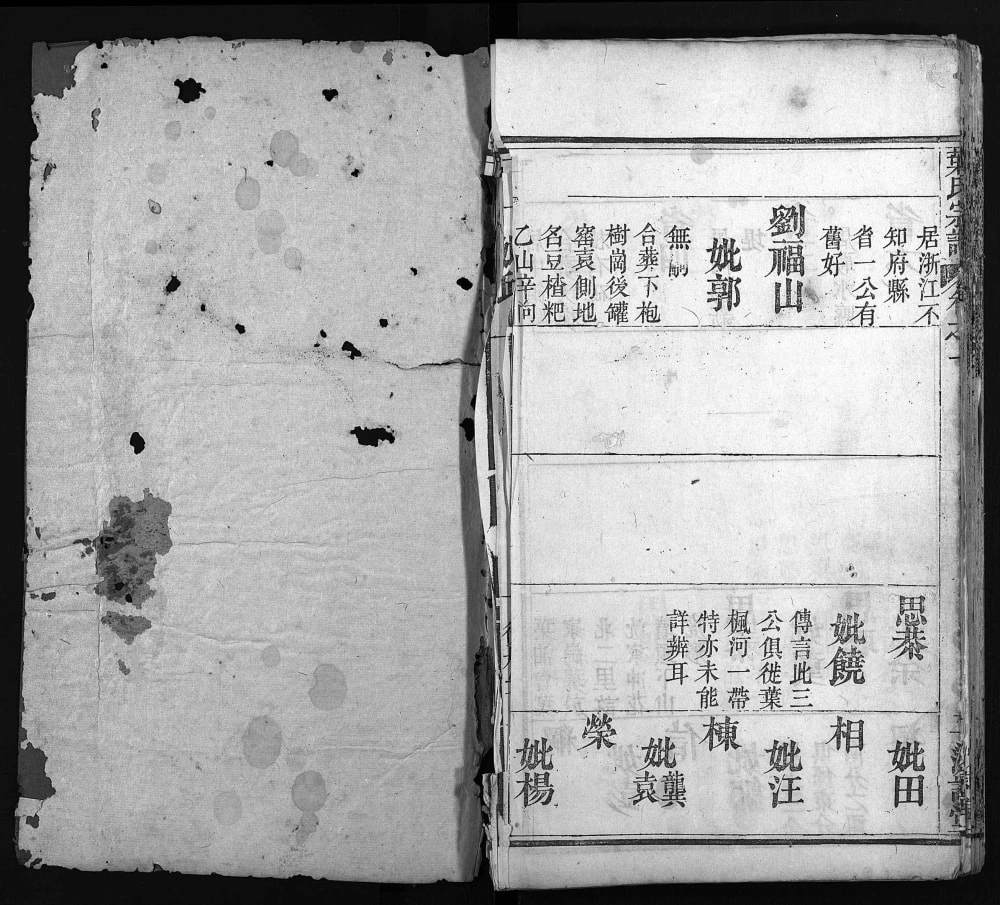 葉氏宗譜
居浙江不
知府縣
省一公有
舊好
劉福山
妣郭
無嗣
合葬下袍
樹崗後罐
窑袁側地
名豆楂粑
乙山辛向
思恭
妣饒
傳言此三
公俱徙葉
楓河一帶
特亦未能
詳辨耳
妣田
相
妣汪
棟
妣龔
袁
榮
妣楊